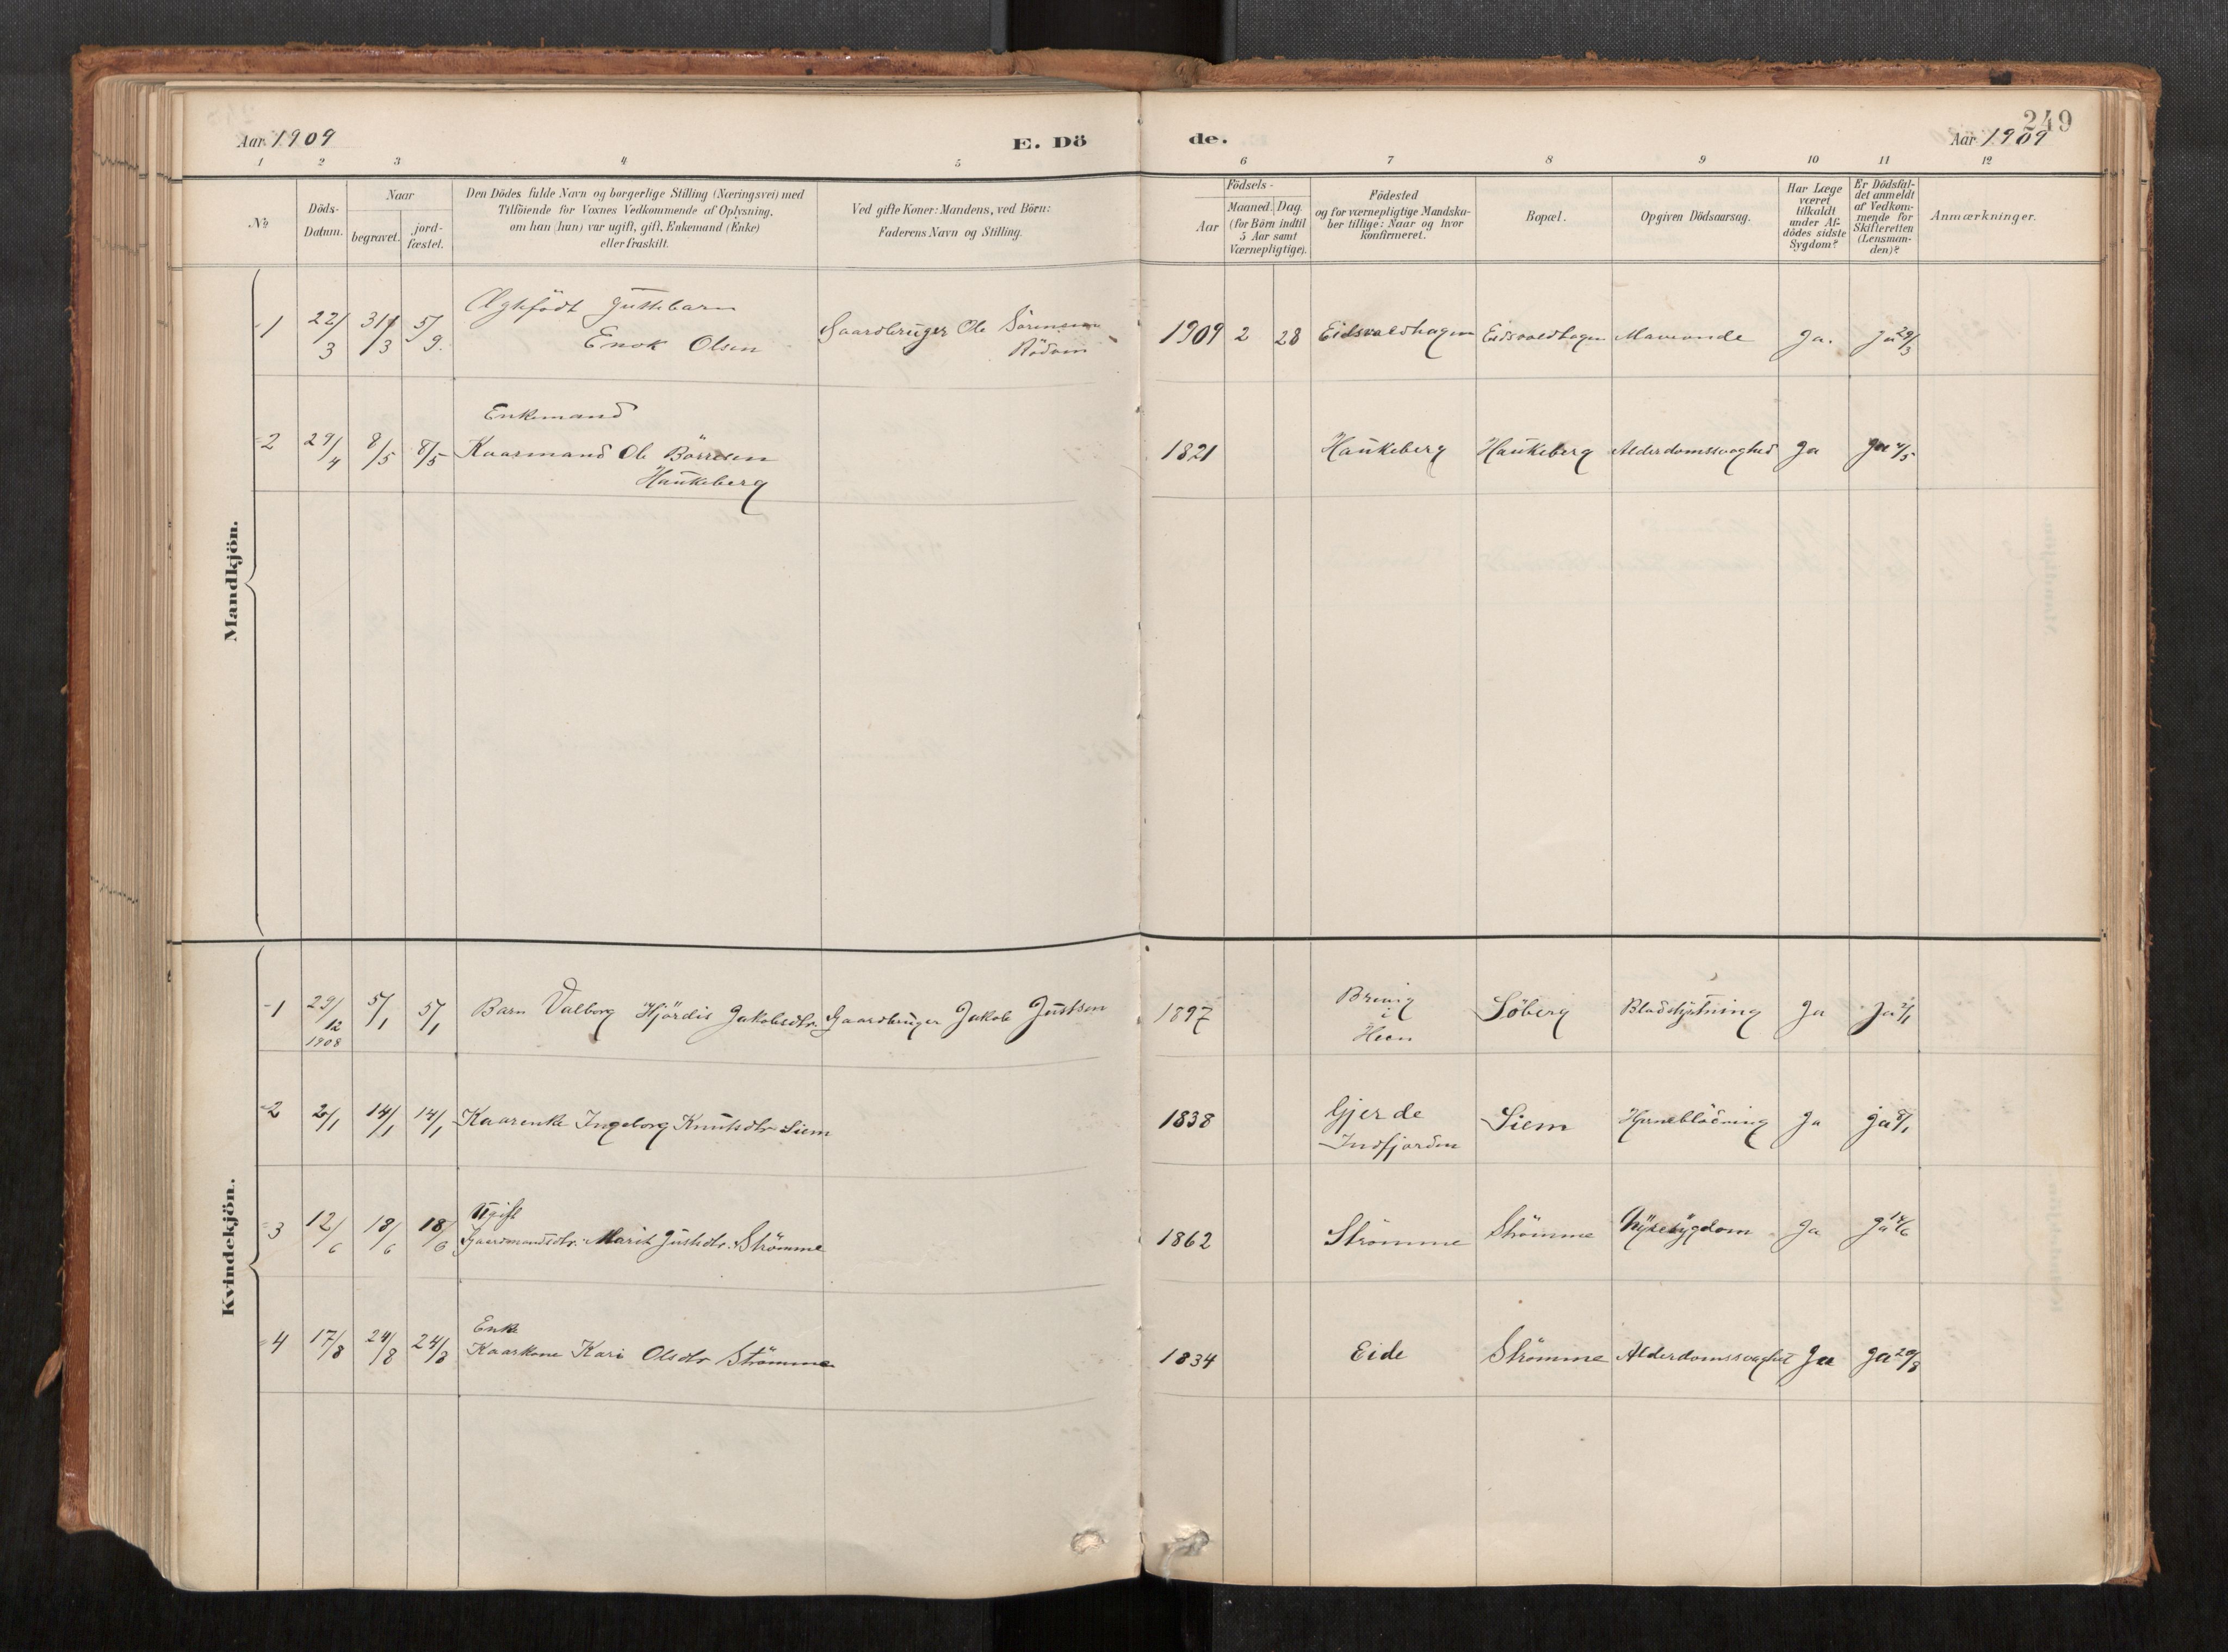 249
Aar 1909
E. Dö
de.
Aar 1909
1 2 3 4 5 6 7 8 9 10 11 12
№
Döds-
Datum.
Naar
begravet.
jord-
fæstet.
Den Dödes fulde Navn og borgerlige Stilling (Næringsvei) med
Tilföiende for Voxnes Vedkommende af Oplysning,
om han (hun) var ugift, gift, Enkemand (Enke)
eller fraskilt.
Ved gifte Koner: Mandens, ved Börn:
Faderens Navn og Stilling.
Födsels-
Aar
Maaned. Dag.
(for Börn indtil
5 Aar samt
Værnepligtige).
Födested
og for værnepligtige Mandska-
ber tillige: Naar og hvor
konfirmeret.
Bopæl.
Opgiven Dödsaarsag.
Har Læge
været
tilkaldt
under Af-
dödes sidste
Sygdom?
Er Dödsfal-
det anmeldt
af Vedkom-
mende for
Skifteretten
(Lensman-
den)?
Anmærkninger.
Mandkjön.
1 22/3 31/3 5/9. Ægtefödt Guttebarn
Enok Olsen
Gaardbruger Ole Sörensen
Rödven
1909 2 28 Eidsvaldhagen Eidsvaldhagen Maveonde Ja. Ja 29/3
Enkemand
2 29/4 8/5 8/5 Kaarmand Ole Börresen
Haukeberg
1821 Haukeberg Haukeberg Alderdomssvaghed Ja Ja 4/5
Kvindekjön.
1 29/12 1908 5/1 5/1 Barn Valborg Hjördis Jakobsdtr. Gaardbruger Jakob Justsen 1897
Brevig
i
Heen
Söberg Blodstyrtning Ja Ja 2/1
2 2/1 14/1 14/1 Kaarenke Ingeborg Knutsdtr Siem 1838
Gjerde
Indfjorden
Siem Hjerneblödning Ja Ja 8/1
Ugift
3 12/6 18/6 18/6 Gaardmandsdtr. Marit Justsdtr. Strömme 1862 Strömme Strömme Nyresygdom Ja Ja 14/6
Enke
4 17/8 24/8 24/8 Kaarkone Kari Olsdtr Strömme 1834 Eide Strömme Alderdomssvaghet Ja Ja 20/8